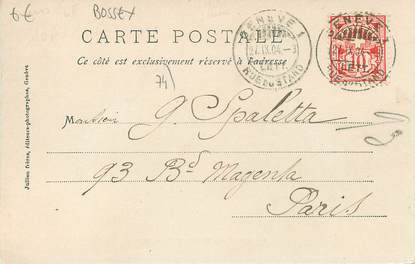 6€
BOSSEY
CARTE POSTALE
Ce côté est exclusivement réservé à l'adresse
74
GENÈVE 1
RUE DU STAND
GENÈVE 1
RUE DU STAND
10
Monsieur G. Spaletta
93 Bd Magenta
Paris
Jullien frères, éditeurs-photographes, Genève